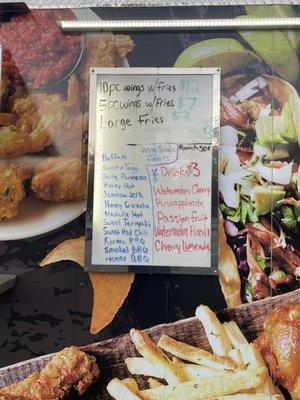 10pc wings w/Fries $12
5pc wings w/Fries $7
Large Fries $3
Wing Sauce Flavors
Ranch 50¢
Buffalo
Sweet n' Tangy
Garlic Parmesan
Honey Hot
Jamaican Jerk
Honey Sriracha
Nashville Hot
Sweet Teriyaki
Sweet Red Chili
Korean BBQ
Smoked BBQ
Honey BBQ
Drinks $3
Watermelon Cherry
Pineapplade
Passion Fruit
Watermelon
Cherry Limeade